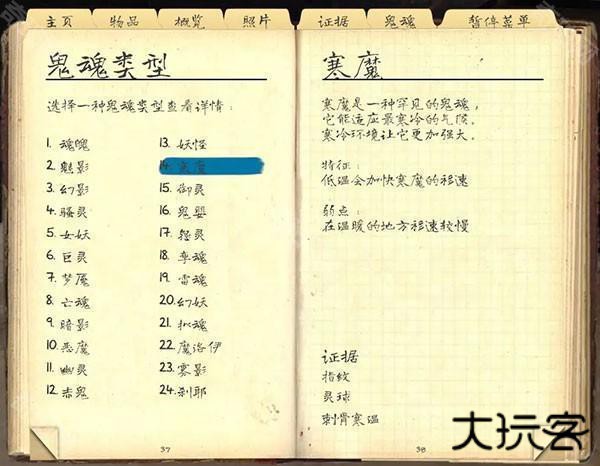 主页 物品 概览 照片 证据 鬼魂 暂停菜单
鬼魂类型
选择一种鬼魂类型查看详情：
1. 魂魄
2. 魅影
3. 幻影
4. 骚灵
5. 女妖
6. 巨灵
7. 梦魇
8. 亡魂
9. 暗影
10. 恶魔
11. 幽灵
12. 赤鬼
13. 妖怪
14. 寒魔
15. 御灵
16. 鬼婴
17. 怨灵
18. 孪魂
19. 雷魂
20. 幻妖
21. 拟魂
22. 魔洛伊
23. 雾影
24. 刹耶
37
寒魔
寒魔是一种罕见的鬼魂，
它能适应最寒冷的气候。
寒冷环境让它更加强大。
特征：
低温会加快寒魔的移速
弱点：
在温暖的地方移速较慢
证据
指纹
灵球
刺骨寒温
38
大玩客